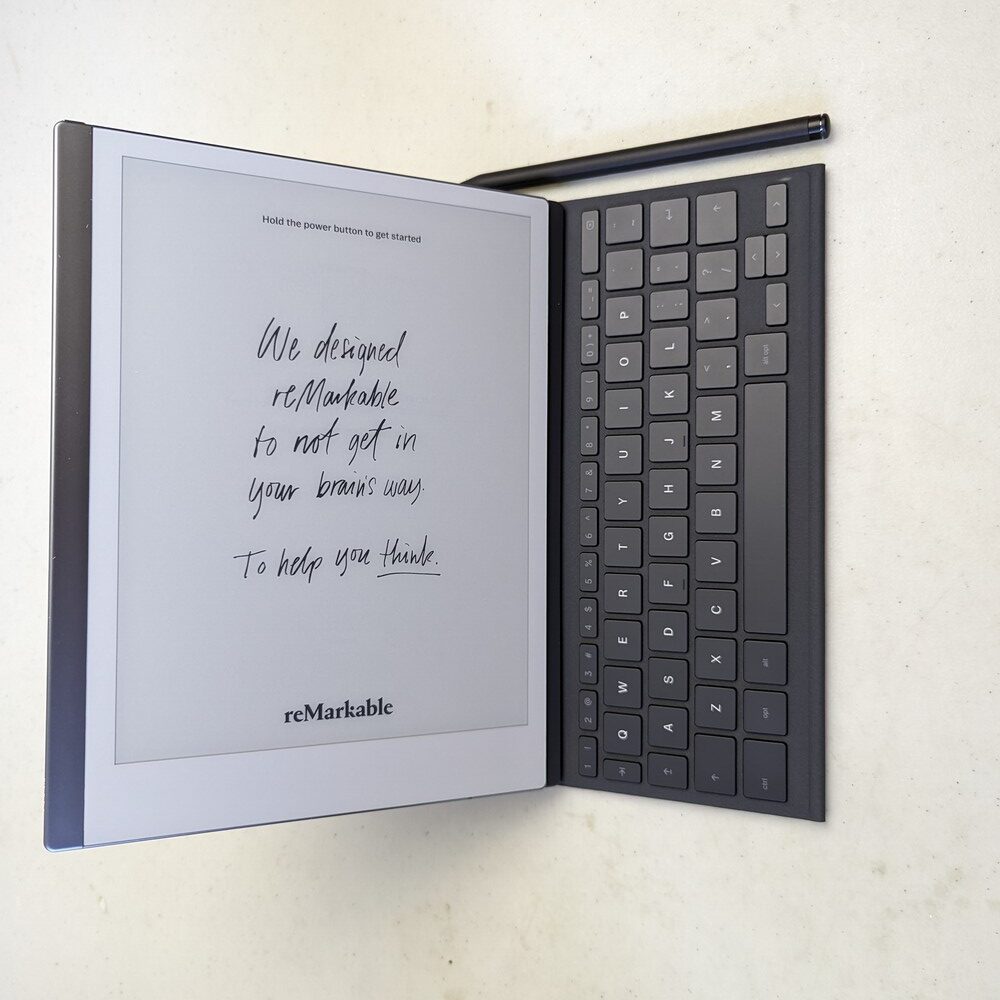 Hold the power button to get started
We designed
reMarkable
to not get in
your brain's way.
To help you think.
reMarkable
1 ! 2 @ 3 # 4 $ 5 % 6 ^ 7 & 8 * 9 ( 0 ) - =
Q W E R T Y U I O P
A S D F G H J K L ; : ' "
Z X C V B N M , < . > / ?
ctrl opt alt alt opt